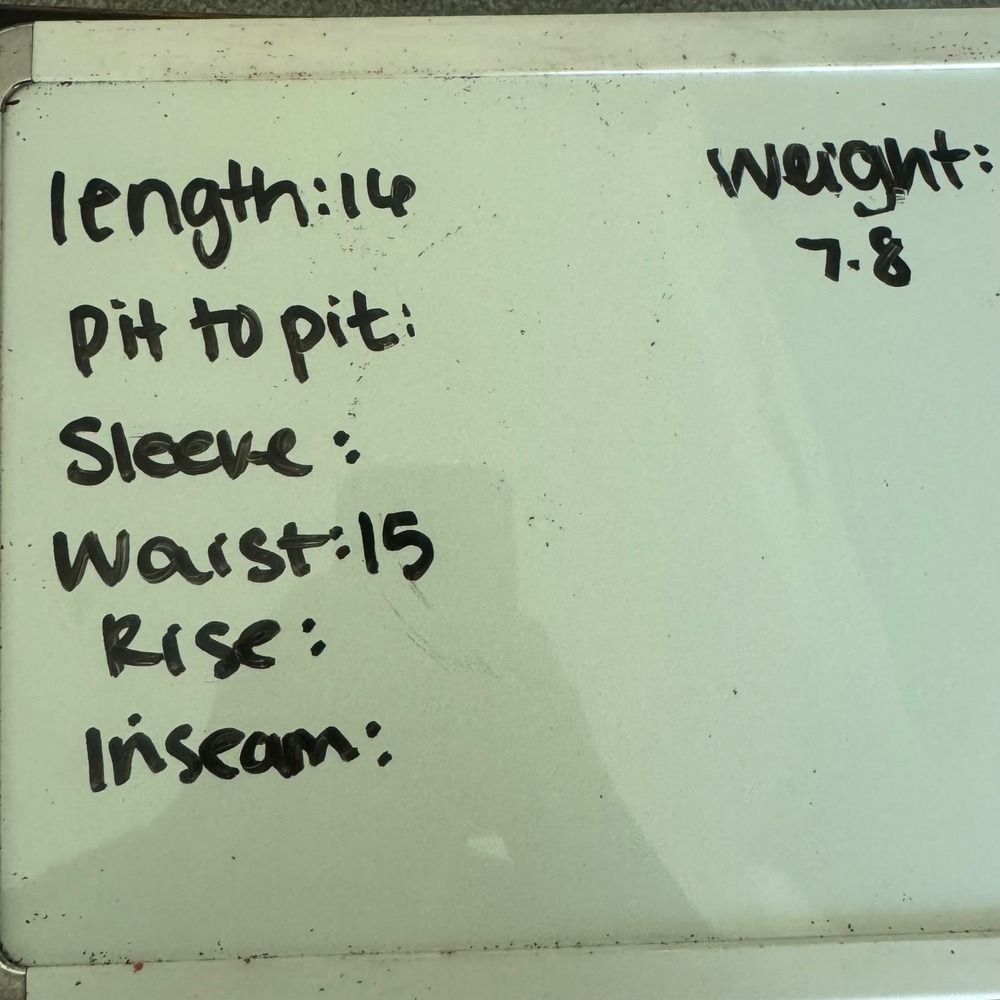 length:16
pit to pit:
Sleeve:
Waist:15
Rise:
Inseam:
weight:
7.8